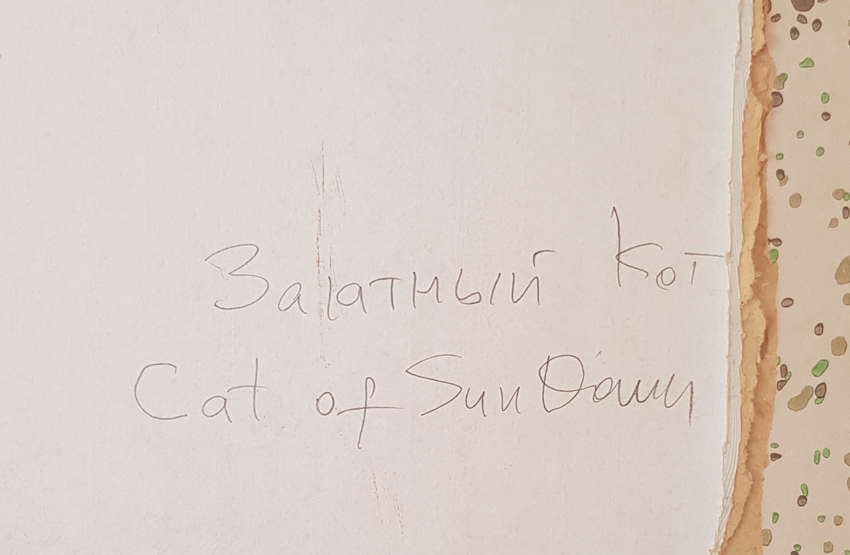 Закатный Кот
Cat of SunDown